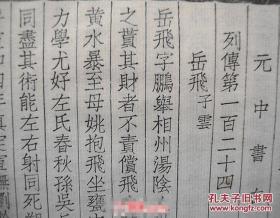 元中書
列傳第一百二十四
岳飛子雲
岳飛字鵬舉相州湯陰
之貰其財者不責償飛
黃水暴至母姚抱飛坐甕
力學尤好左氏春秋孫吳
同盡其術能左右射同死